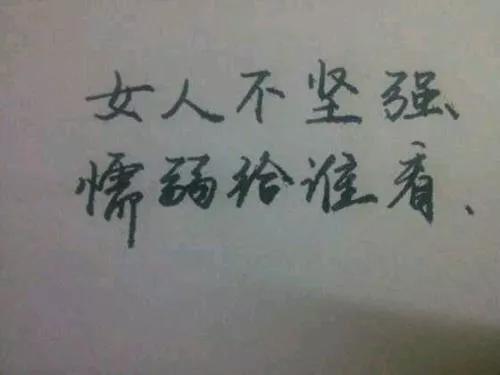 女人不坚强、
懦弱给谁看、